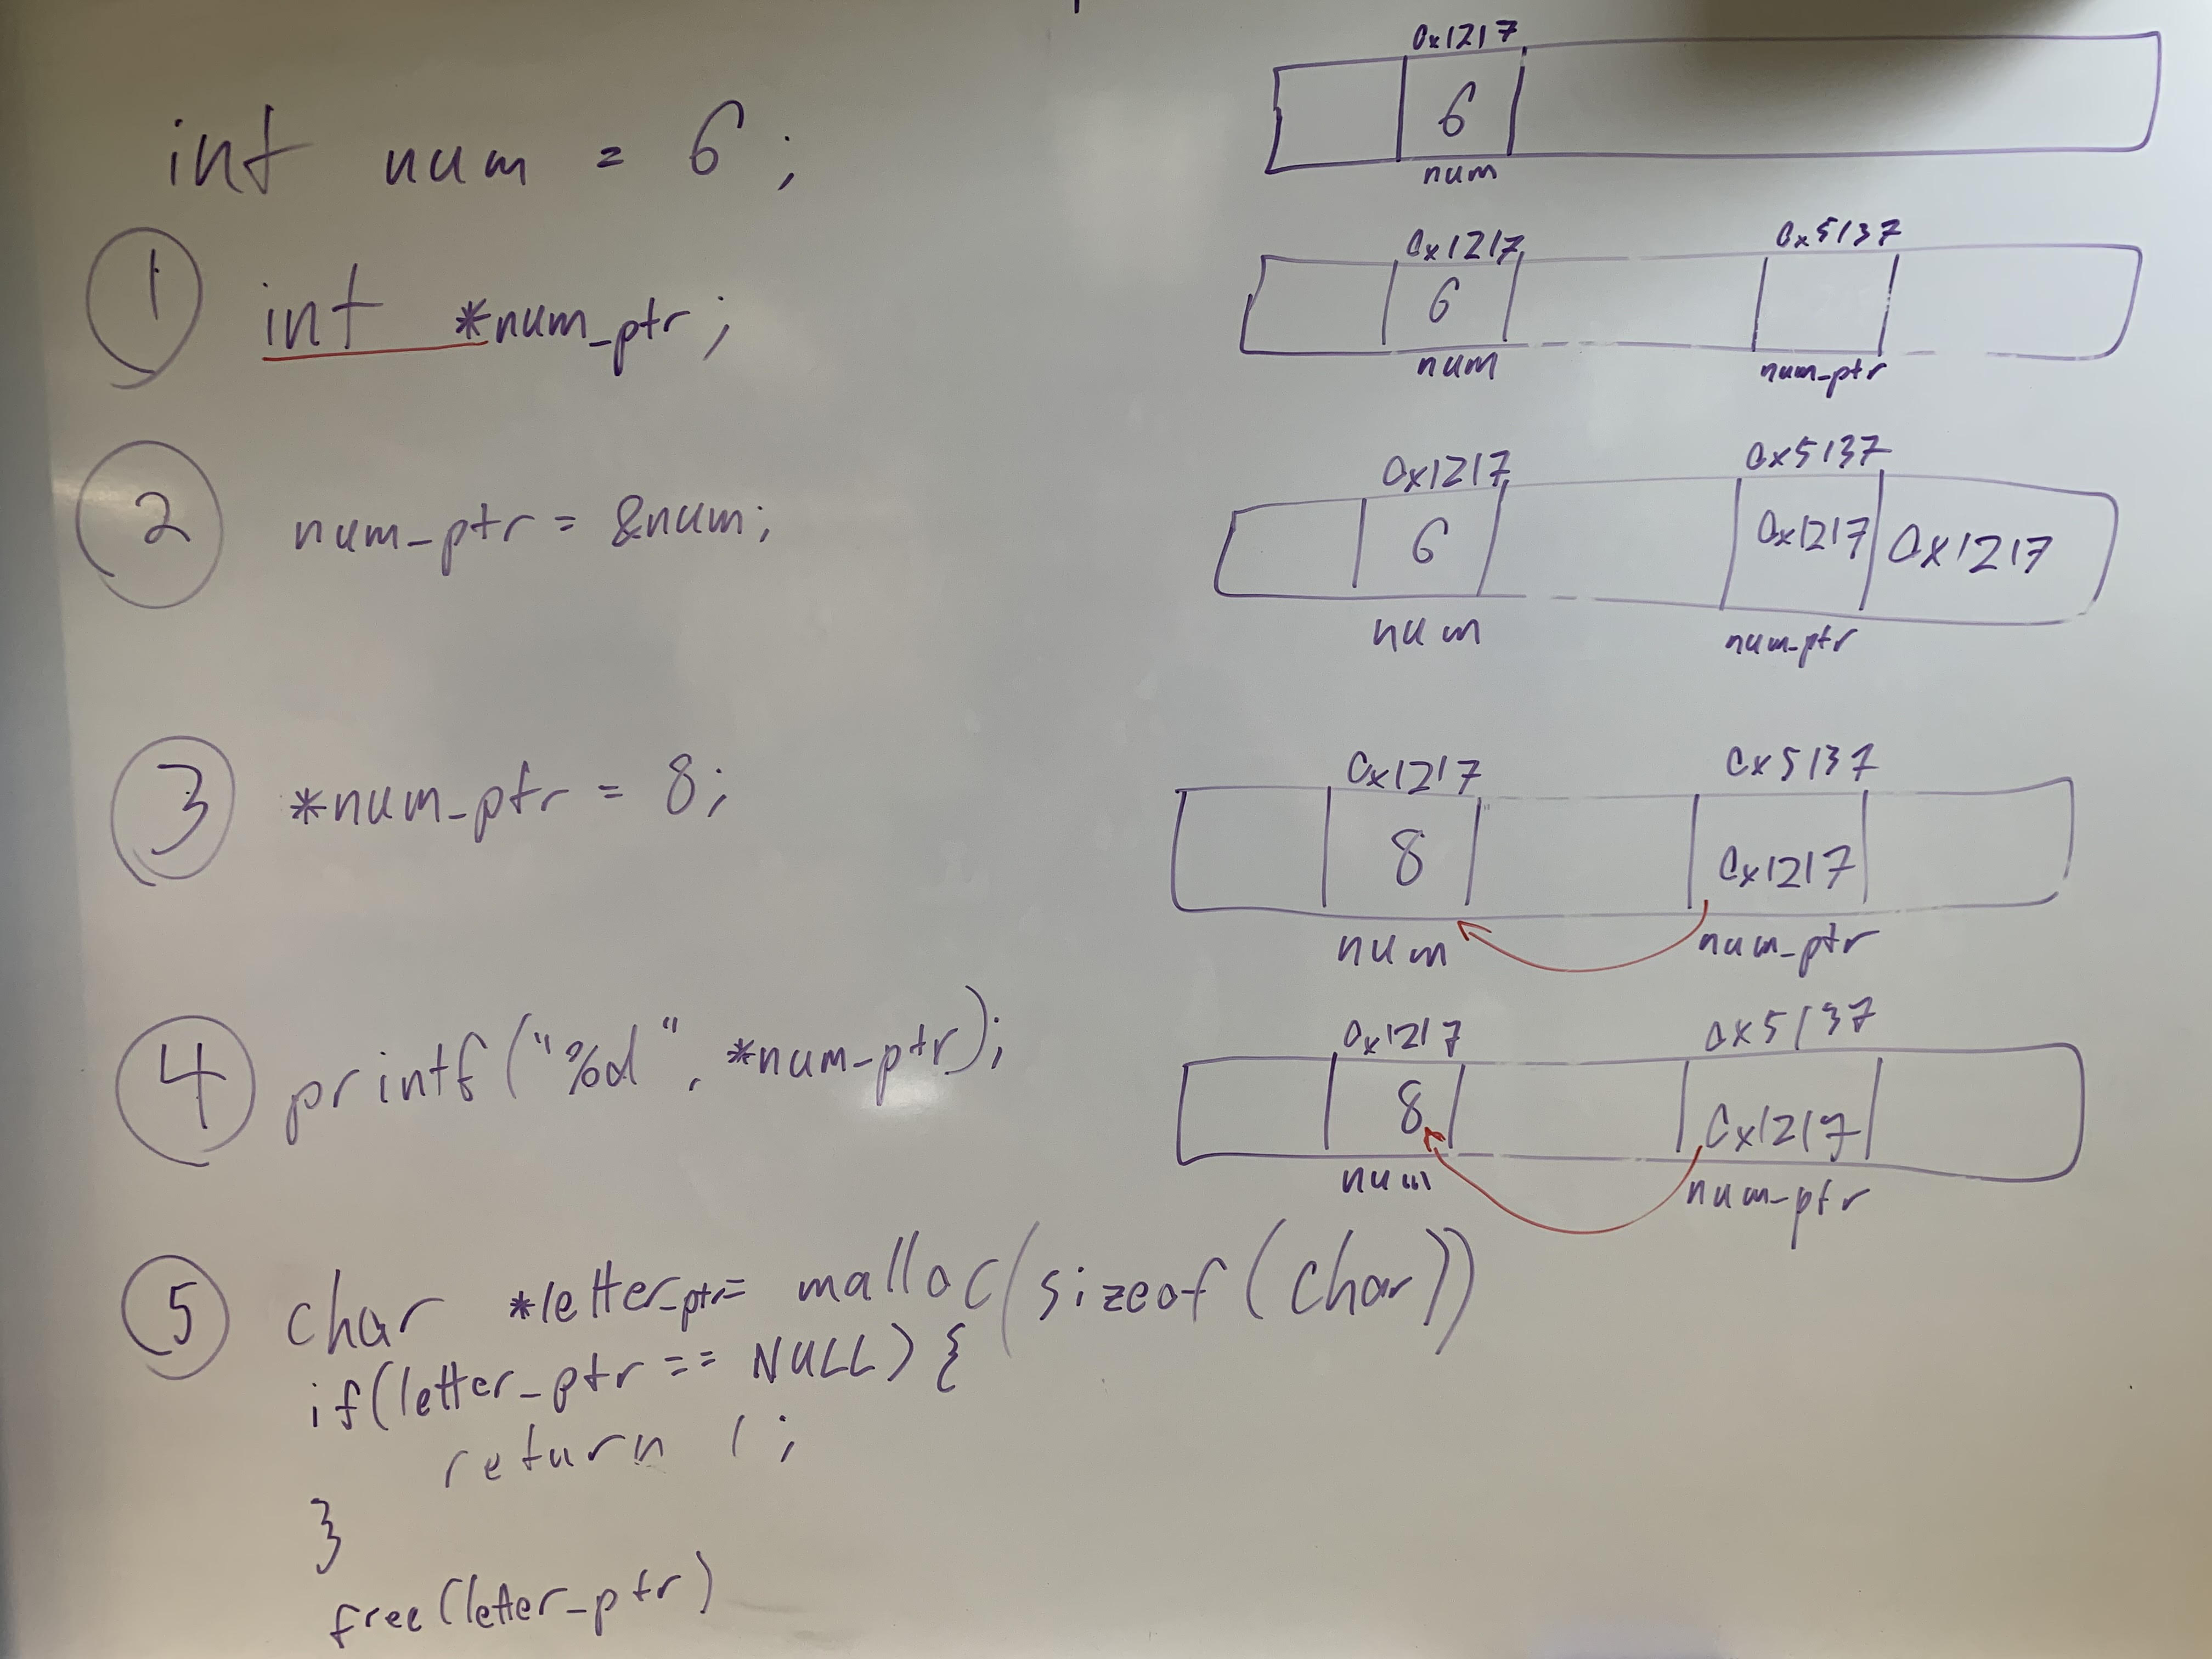 int num = 6;
0x1217
6
num
1 int *num_ptr;
0x1217 0x5137
6
num num_ptr
2 num_ptr = &num;
0x1217 0x5137
6 0x1217 0x1217
num num_ptr
3 *num_ptr = 8;
0x1217 0x5137
8 0x1217
num num_ptr
4 printf("%d", *num_ptr);
0x1217 0x5137
8 0x1217
num num_ptr
5 char *letter_ptr= malloc(sizeof(char))
if(letter_ptr == NULL) {
return 1;
}
free(letter_ptr)